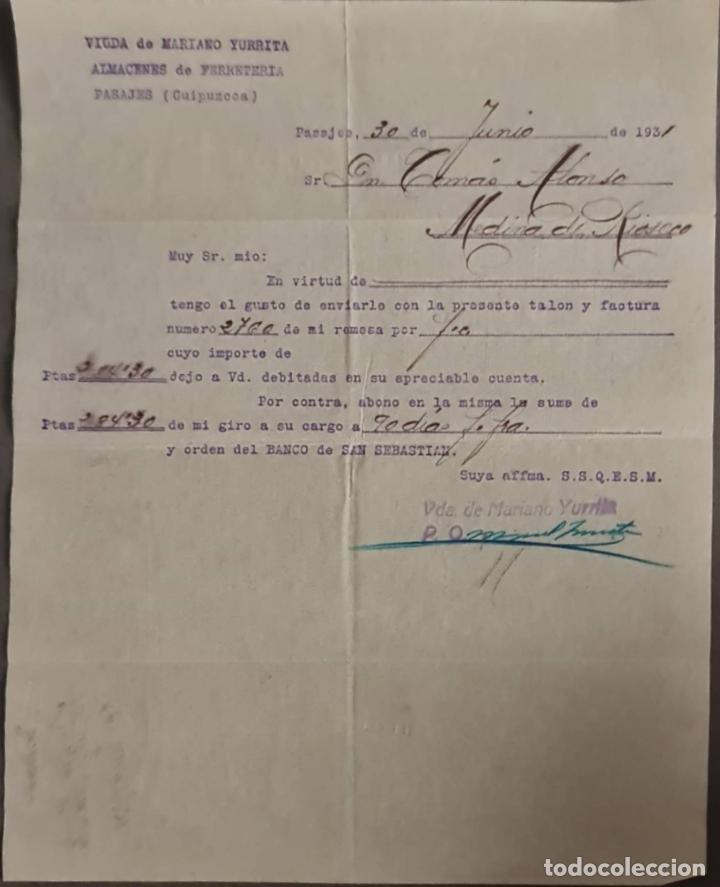 VIUDA de MARIANO YURRITA
ALMACENES de FERRETERIA
PASAJES (Guipuzcoa)
Pasajes, 30 de Junio de 1931
Sr. Dn Tomás Alonso
Medina de Rioseco
Muy Sr. mio:
En virtud de
tengo el gusto de enviarle con la presente talon y factura
numero 2760 de mi remesa por f.c.
cuyo importe de
Ptas 284'30 dejo a Vd. debitadas en su apreciable cuenta.
Por contra, abono en la misma la suma de
Ptas 284'30 de mi giro a su cargo a 90 días f. fra.
y orden del BANCO de SAN SEBASTIAN.
Suya affma. S.S.Q.E.S.M.
Vda. de Mariano Yurrita
P. O.
todocoleccion.net